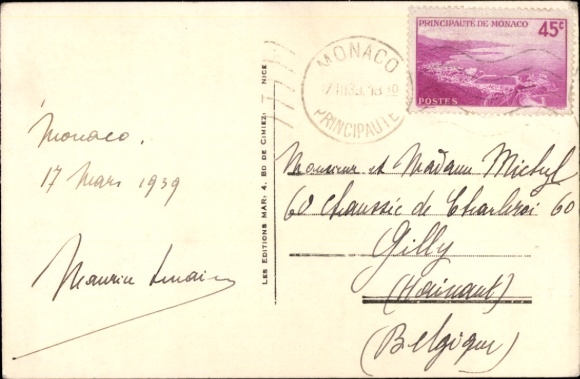 Monaco.
17 Mars 1939
Maurice
LES EDITIONS MAR. 4, BD DE CIMIEZ. NICE
MONACO
PRINCIPAUTÉ
PRINCIPAUTÉ DE MONACO
45c
POSTES
Monsieur et Madame
60 chaussée de Charleroi 60
Gilly
(Hainaut)
(Belgique)